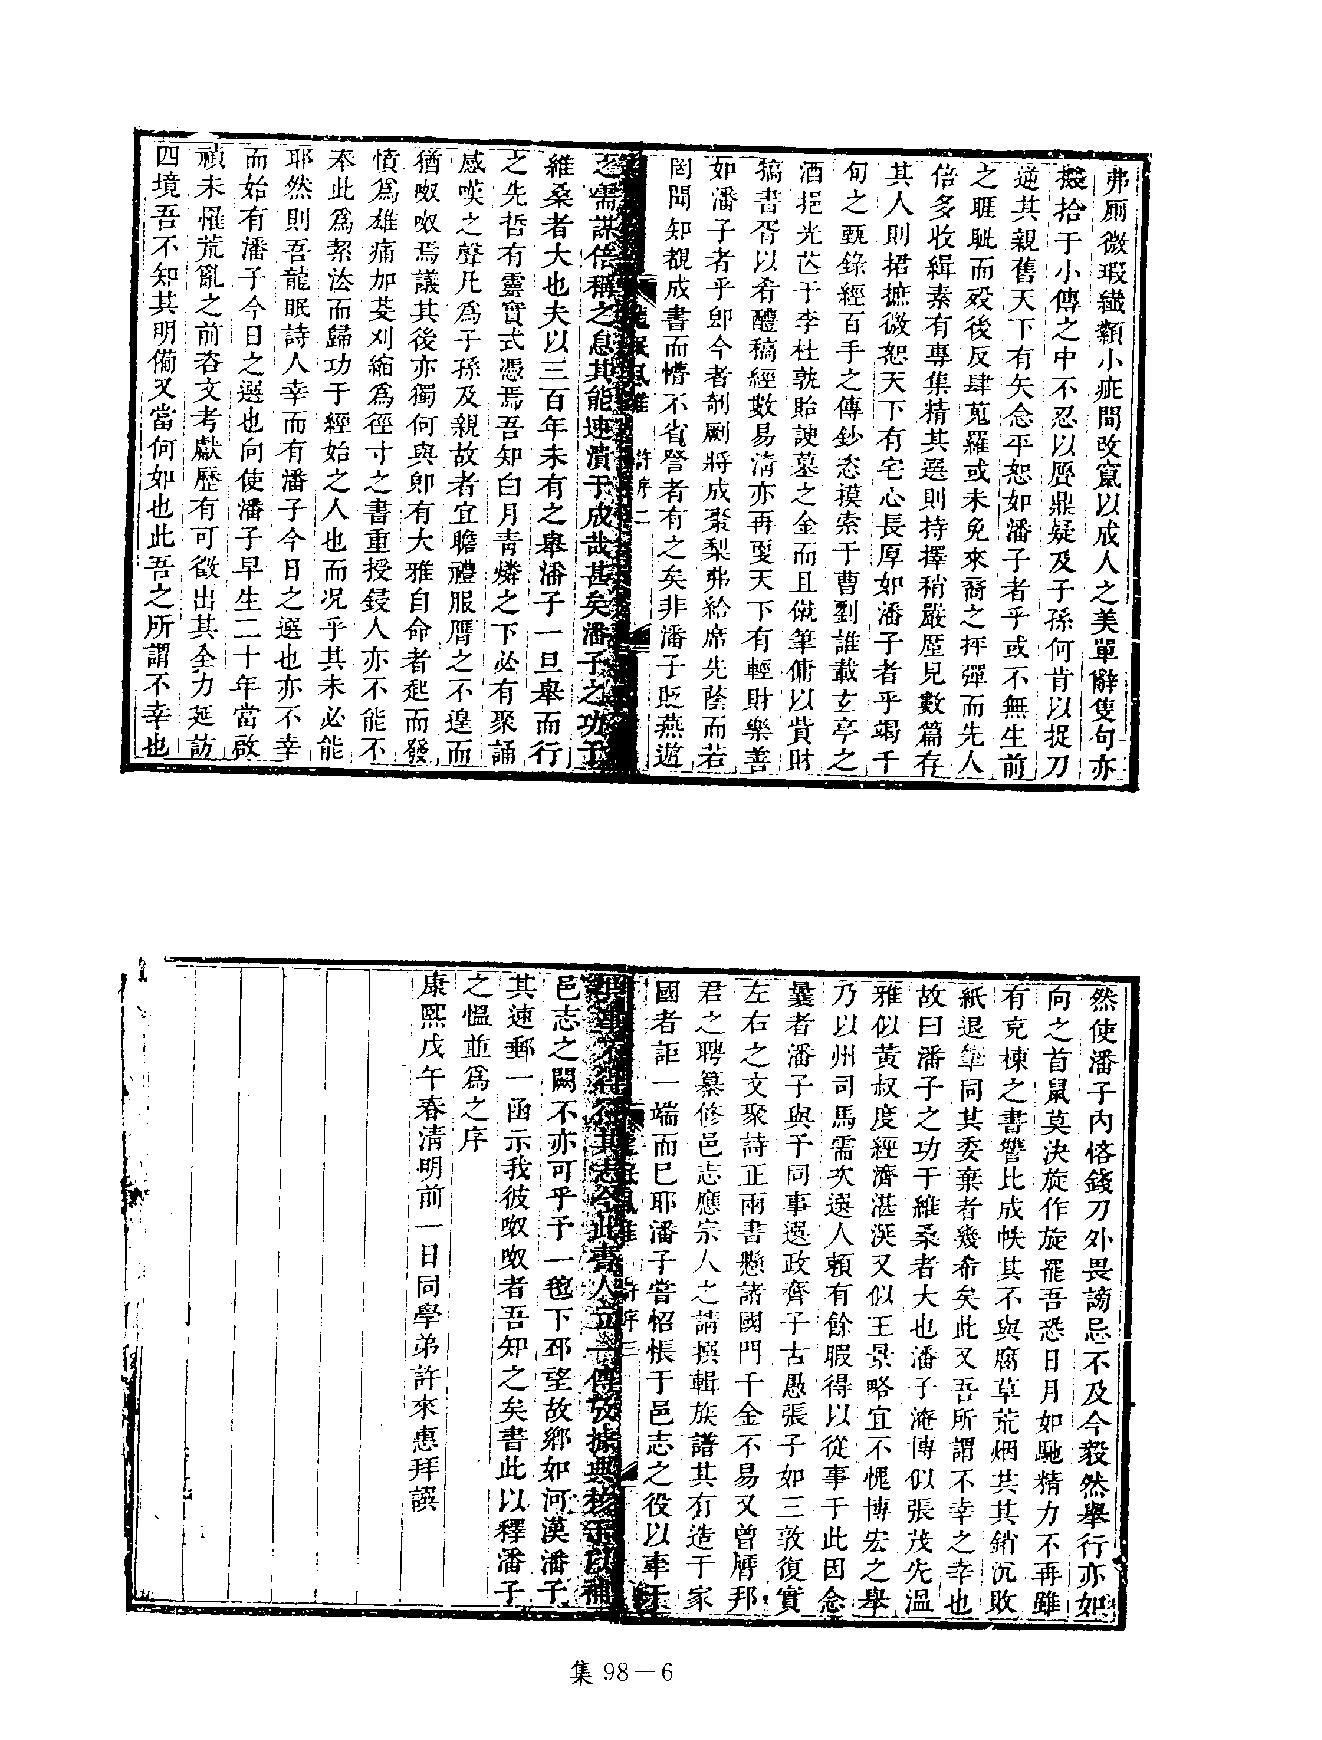 弗厠微瑕纖纇小疵間改竄以成人之美單辭隻句亦
掇拾于小傳之中不忍以贋鼎疑及子孫何肯以捉刀
適其親舊天下有矢念平恕如潘子者乎或不無生前
之睚眦而歿後反肆蒐羅或未免來裔之抨彈而先人
倍多收緝素有專集精其選則持擇稍嚴歴見數篇存
其人則捃摭微恕天下有宅心長厚如潘子者乎竭千
旬之甄錄經百手之傳鈔态摸索于曹劉誰載玄亭之
酒挹光芒于李杜孰貽諛墓之金而且僦筆傭以貲財
犒書胥以肴醴稿經數易淸亦再更天下有輕財樂善
如潘子者乎卽今者剞劂將成棗梨弗給席先蔭而若
罔聞知覩成書而惜不省詧者有之矣非潘子貶燕遊
龍眠風雅 許序二
之需謀倍稱之息其能速潰于成哉甚矣潘子之功于
維桑者大也夫以三百年未有之舉潘子一旦舉而行
之先哲有靈實式憑焉吾知白月靑燐之下必有聚誦
感嘆之聲凡爲子孫及親故者宜瞻禮服膺之不遑而
猶呶呶焉議其後亦獨何與卽有大雅自命者起而發
憤爲雄痛加芟刈縮爲徑寸之書重授鋟人亦不能不
奉此爲絜法而歸功于經始之人也而况乎其未必能
耶然則吾龍眠詩人幸而有潘子今日之選也亦不幸
而始有潘子今日之選也向使潘子早生二十年當啟
禎未罹荒亂之前咨文考獻歷有可徵出其全力延訪
四境吾不知其明備又當何如也此吾之所謂不幸也
然使潘子内悋錢刀外畏謗忌不及今毅然舉行亦如
向之首鼠莫决旋作旋罷吾恐日月如馳精力不再雖
有充棟之書讐比成帙其不與腐草荒烟共其銷沉敗
紙退筆同其委棄者幾希矣此又吾所謂不幸之幸也
故曰潘子之功于維桑者大也潘子淹博似張茂先溫
雅似黃叔度經濟湛深又似王景略宜不愧博宏之舉
乃以州司馬需次選人頼有餘暇得以從事于此因念
曩者潘子與予同事選政齊子古愚張子如三敦復實
左右之文聚詩正兩書懸諸國門千金不易又曾膺邦
君之聘纂修邑志應宗人之請撰輯族譜其有造于家
國者詎一端而已耶潘子嘗怊悵于邑志之役以牽于
龍眠風雅 許序三
不得行其志今此書人立一傳攷據典核示以補
邑志之闕不亦可乎予一氊下邳望故鄉如河漢潘子
其速郵一函示我彼呶呶者吾知之矣書此以釋潘子
之慍並爲之序
康熙戊午春淸明前一日同學弟許來惠拜譔
集 98－6